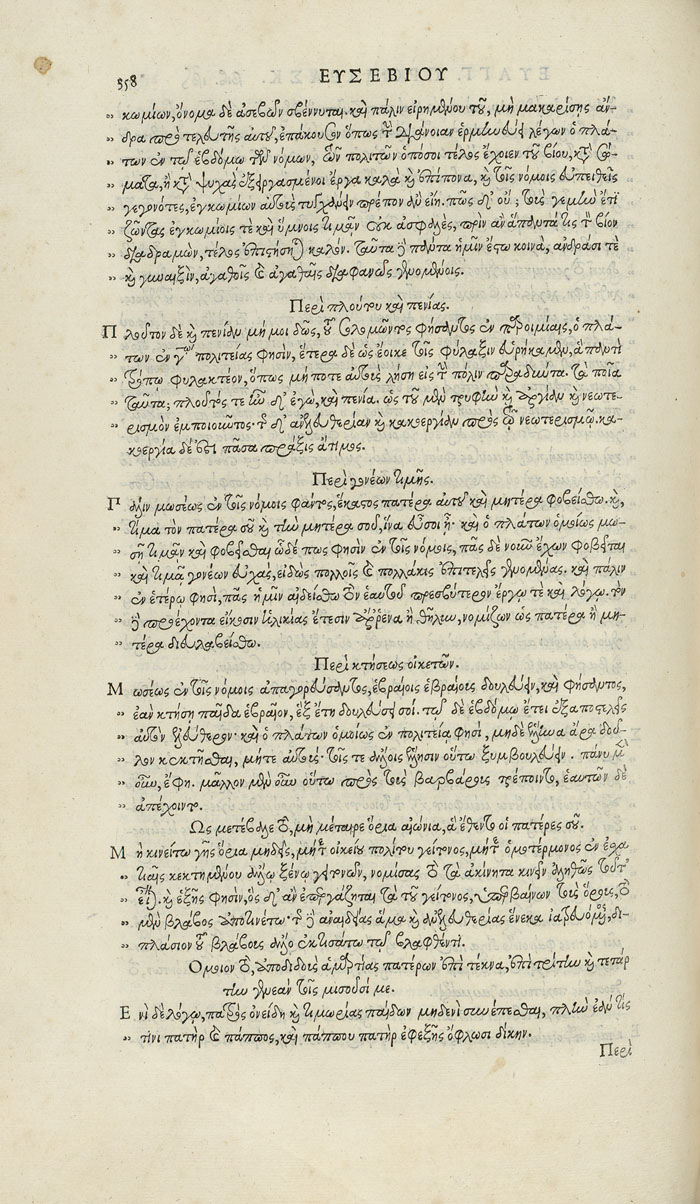 358 ΕΥΣΕΒΙΟΥ
κωμίων, ὄνομα δὲ ἀσεβῶν σβέννυται. καὶ πάλιν εἰρημένου τοῦ, μὴ μακαρίσῃς ἄν-
δρα πρὸ τελευτῆς αὐτοῦ, ἐπάκουσον ὅπως τὴν διάνοιαν ἑρμηνεύει λέγων ὁ πλά-
των ἐν τῷ ἑβδόμῳ τῶν νόμων, τῶν πολιτῶν ὁπόσοι τέλος ἔχοιεν τοῦ βίου, κατὰ σώ-
ματα, ἢ κατὰ ψυχὰς ἐξειργασμένοι ἔργα καλὰ καὶ ἐπίπονα, καὶ τοῖς νόμοις εὐπειθεῖς
γεγονότες, ἐγκωμίων αὐτοὺς τυγχάνειν πρέπον ἂν εἴη. πῶς δ' οὔ; τούς γε μὴν ἔτι
ζῶντας ἐγκωμίοις τε καὶ ὕμνοις τιμᾶν οὐκ ἀσφαλὲς, πρὶν ἂν ἅπαντά τις τὸν βίον
διαδραμὼν, τέλος ἐπιστήσηται καλόν. ταῦτα δὲ πάντα ἡμῖν ἔστω κοινὰ, ἀνδράσι τὲ
καὶ γυναιξὶν, ἀγαθοῖς καὶ ἀγαθαῖς διαφανῶς γενομένοις.
Περὶ πλούτου καὶ πενίας.
Πλοῦτον δὲ καὶ πενίαν μή μοι δῷς, τοῦ σολομῶντος φήσαντος ἐν παροιμίαις, ὁ πλά-
των ἐν τῇ πολιτείας φησὶν, ἕτερα δὲ ὡς ἔοικε τοῖς φύλαξιν εὑρήκαμεν, ἃ παντὶ
τρόπῳ φυλακτέον, ὅπως μή ποτε αὐτοὺς λήσῃ εἰς τὴν πόλιν παραδύντα. τὰ ποῖα
ταῦτα; πλοῦτός τε ἦν δ' ἐγὼ, καὶ πενία. ὡς τοῦ μὲν τρυφὴν καὶ ἀργίαν καὶ νεωτε-
ρισμὸν ἐμποιοῦντος· τῆς δ' ἀνελευθερίαν καὶ κακεργίαν πρὸς τῷ νεωτερισμῷ. κα-
κεργία δέ ἐστι πᾶσα πρᾶξις ἄτιμος.
Περὶ γονέων τιμῆς.
Πάλιν μωσέως ἐν τοῖς νόμοις φάντος, ἕκαστος πατέρα αὐτοῦ καὶ μητέρα φοβείσθω. καὶ,
τίμα τὸν πατέρα σοῦ καὶ τὴν μητέρα σοῦ, ἵνα εὖ σοι ᾖ· καὶ ὁ πλάτων ὁμοίως μω-
σῇ τιμᾶν καὶ φοβεῖσθαι ὧδέ πως φησὶν ἐν τοῖς νόμοις, πᾶς δὲ νοῦν ἔχων φοβεῖται
καὶ τιμᾷ γονέων εὐχὰς, εἰδὼς πολλοῖς καὶ πολλάκις ἐπιτελεῖς γενομένας. καὶ πάλιν
ἐν ἑτέρῳ φησὶ, πᾶς ἡμῖν αἰδείσθω τὸν ἑαυτοῦ πρεσβύτερον ἔργῳ τὲ καὶ λόγῳ. τὸν
δὲ προέχοντα εἴκοσιν ἡλικίας ἔτεσιν ἄρρενα ἢ θῆλυν, νομίζων ὡς πατέρα ἢ μη-
τέρα διευλαβείσθω.
Περὶ κτήσεως οἰκετῶν.
Μωσέως ἐν τοῖς νόμοις ἀπαγορεύσαντος, ἑβραίοις ἑβραίους δουλεύειν, καὶ φήσαντος,
ἐὰν κτήσῃ παῖδα ἑβραῖον, ἓξ ἔτη δουλεύσει σοί. τῷ δὲ ἑβδόμῳ ἔτει ἐξαποστελεῖς
αὐτὸν ἐλεύθερον· καὶ ὁ πλάτων ὁμοίως ἐν πολιτείᾳ φησὶ, μηδὲ ἕλληνα ἄρα δοῦ-
λον κεκτῆσθαι, μήτε αὐτοὺς· τοῖς τε ἄλλοις ἕλλησιν οὕτω ξυμβουλεύειν. πάνυ μὲν
οὖν, ἔφη. μᾶλλον μὲν οὖν οὕτω πρὸς τοὺς βαρβάρους τρέποιντο, ἑαυτῶν δὲ
ἀπέχοιντο.
Ὡς μετέβαλε τὸ, μὴ μέταιρε ὅρια αἰώνια, ἃ ἔθεντο οἱ πατέρες σοῦ.
Μὴ κινείτω γῆς ὅρια μηδεὶς, μήτε οἰκείου πολίτου γείτονος, μήτε ὁμοτέρμονος ἐν ἐσχα-
τιαῖς κεκτημένου ἄλλῳ ξένῳ γειτονῶν, νομίσας τὸ τὰ ἀκίνητα κινεῖν ἀληθῶς τοῦτ'
εἶναι. καὶ ἑξῆς φησὶν, ὃς δ' ἂν ἐπεργάζηται τὰ τοῦ γείτονος, ὑπερβαίνων τοὺς ὅρους, τὸ
μὲν βλάβος ἀποτινέτω· τῆς δὲ ἀναιδείας ἅμα καὶ ἀνελευθερίας ἕνεκα ἰατρευόμενος, δι-
πλάσιον τοῦ βλάβους ἄλλο ἐκτισάτω τῷ βλαφθέντι.
Ὅμοιον τὸ, ἀποδιδοὺς ἁμαρτίας πατέρων ἐπὶ τέκνα, ἐπὶ τρίτην καὶ τετάρ
την γενεὰν τοῖς μισοῦσί με.
Ἑνὶ δὲ λόγῳ, πατρὸς ὀνείδη καὶ τιμωρίας παίδων μηδενὶ συνέπεσθαι, πλὴν ἐάν τις
τίνι πατὴρ καὶ πάππος, καὶ πάππου πατὴρ ἐφεξῆς ὄφλωσι δίκην.
Περὶ